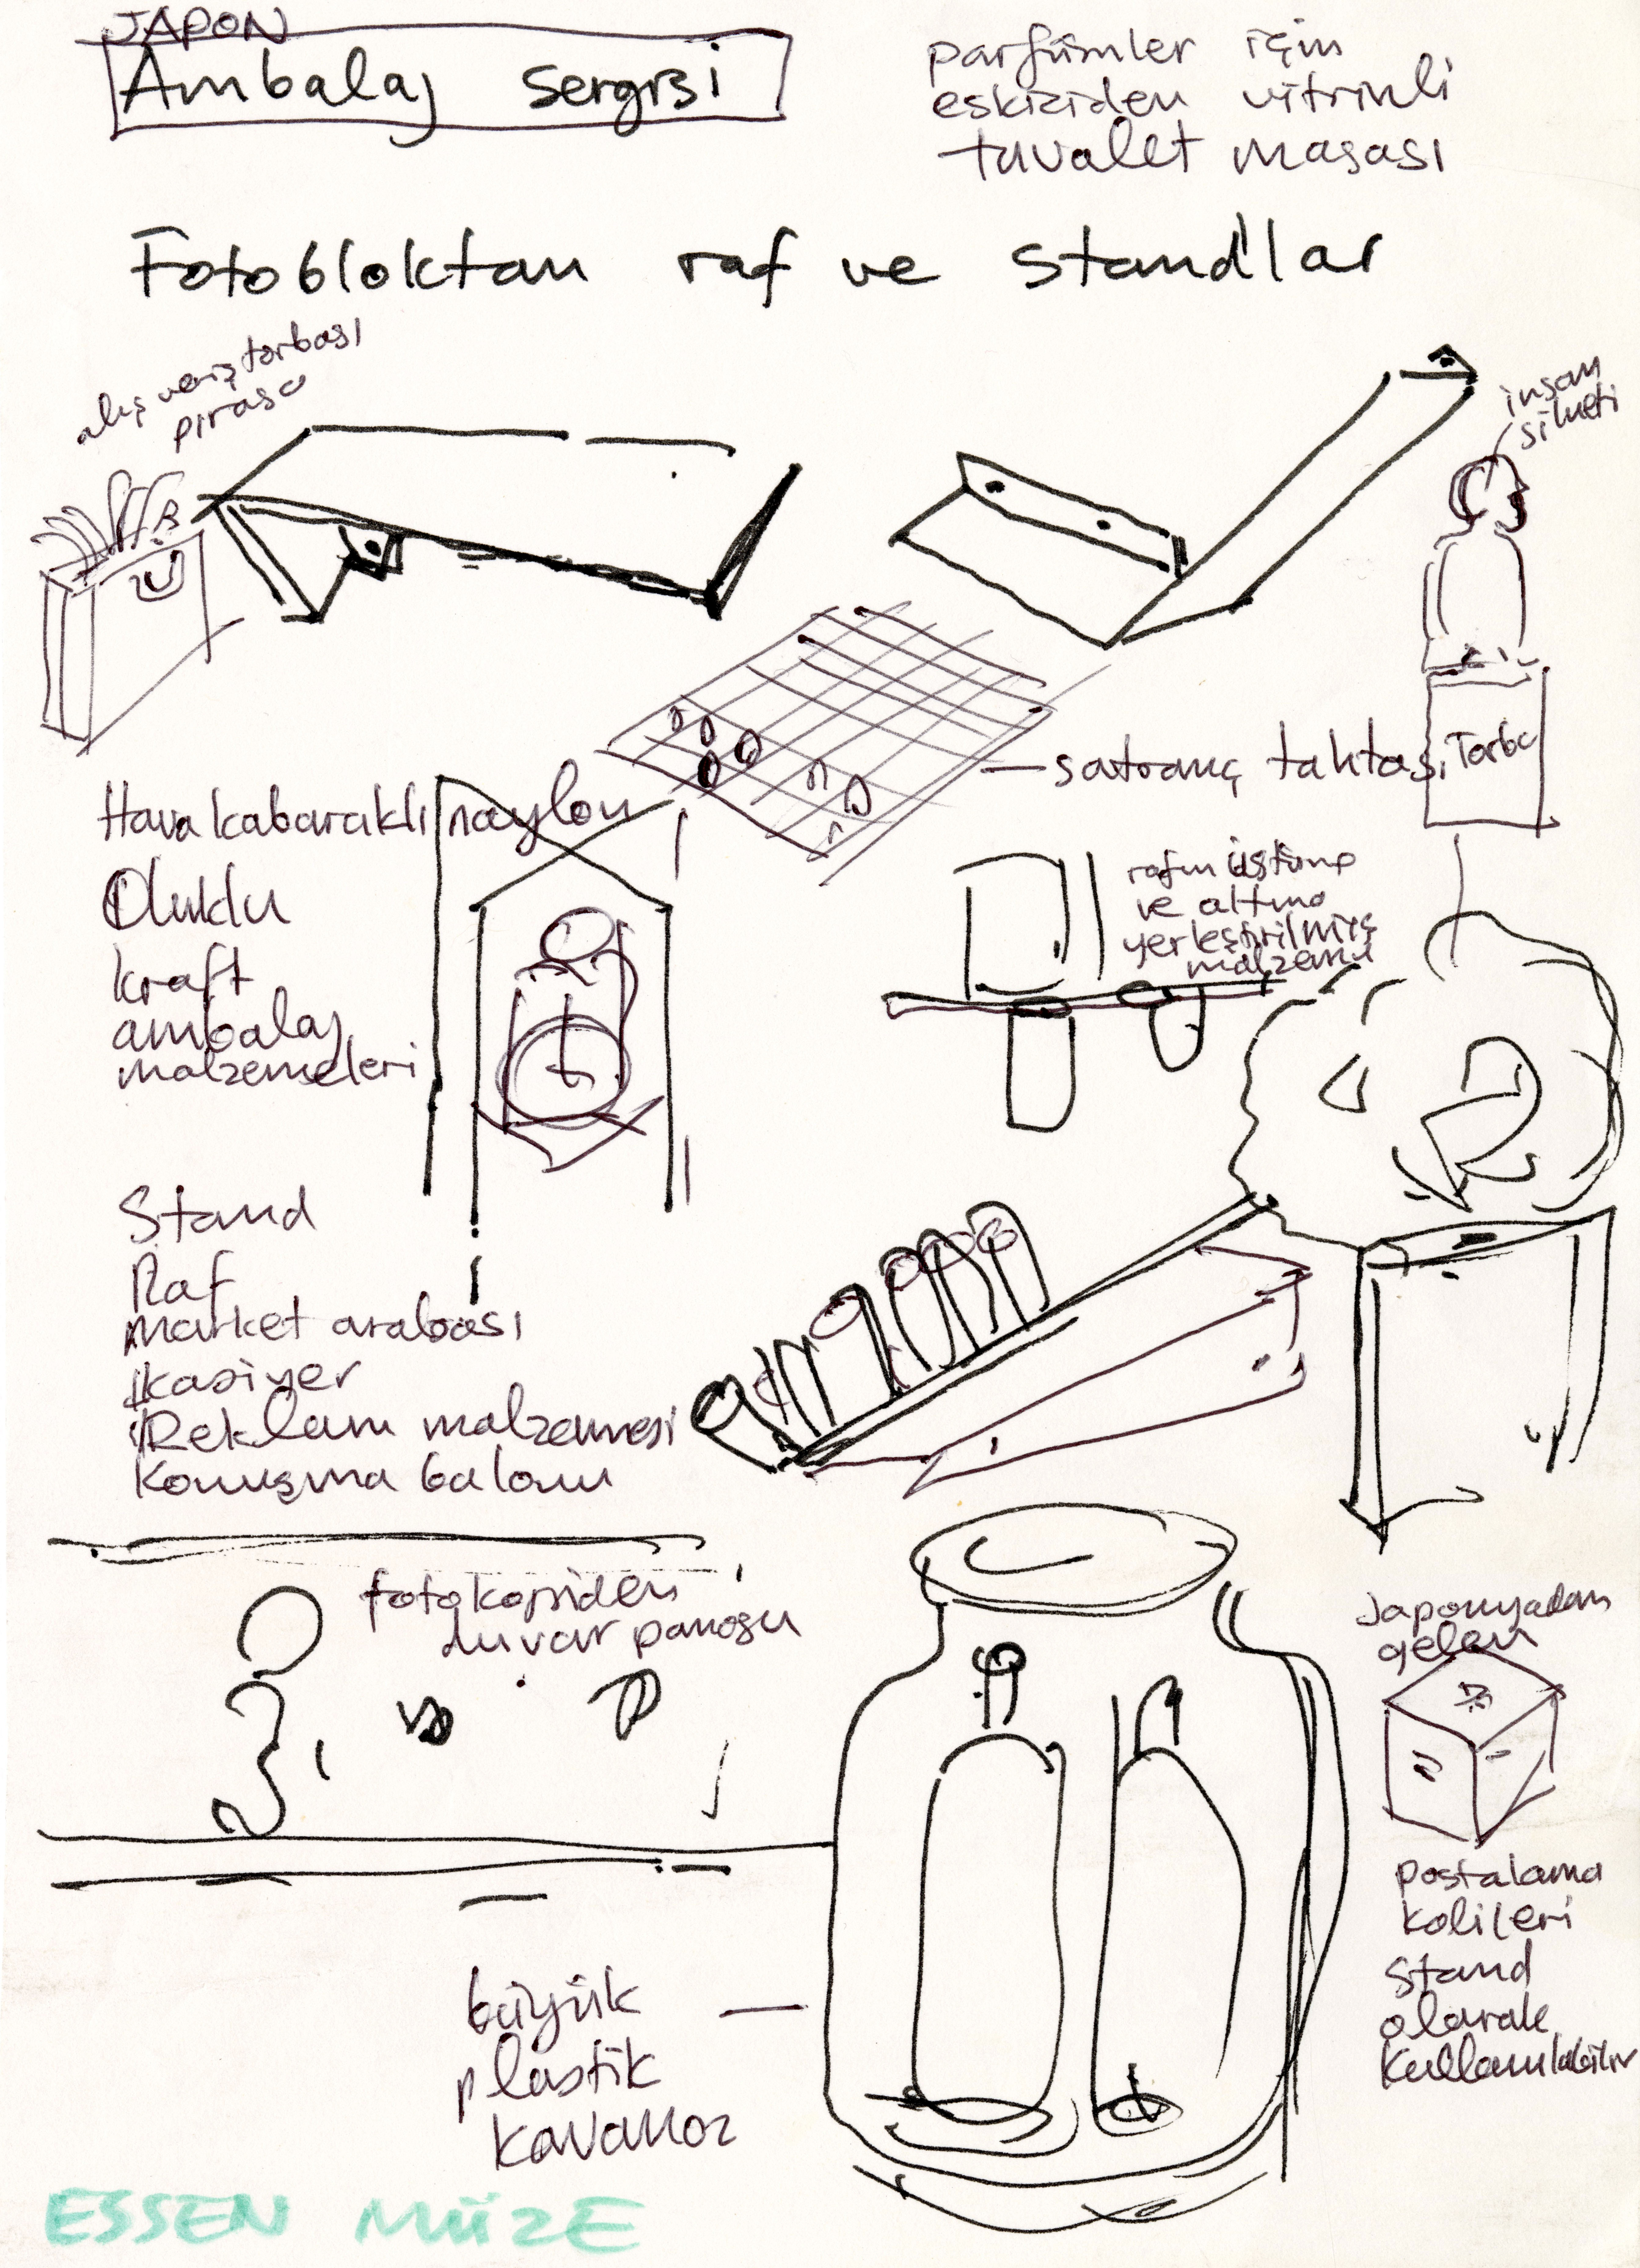 JAPON
Ambalaj Sergisi
parfümler için
eskiziden vitrinli
tuvalet masası
Fotobloktan raf ve standlar
alış veriş torbası
pırasa
insan
silueti
satranç tahtası
Torba
Hava kabaraklı naylon
Oluklu
kraft
ambalaj
malzemeleri
rafın üstüne
ve altına
yerleştirilmiş
malzeme
Stand
Raf
market arabası
kasiyer
Reklam malzemesi
Konuşma balonu
fotokopiden
duvar panosu
Japonyadan
gelen
postalama
kolileri
stand
olarak
kullanılabilir
büyük
plastik
kavanoz
ESSEN MÜZE